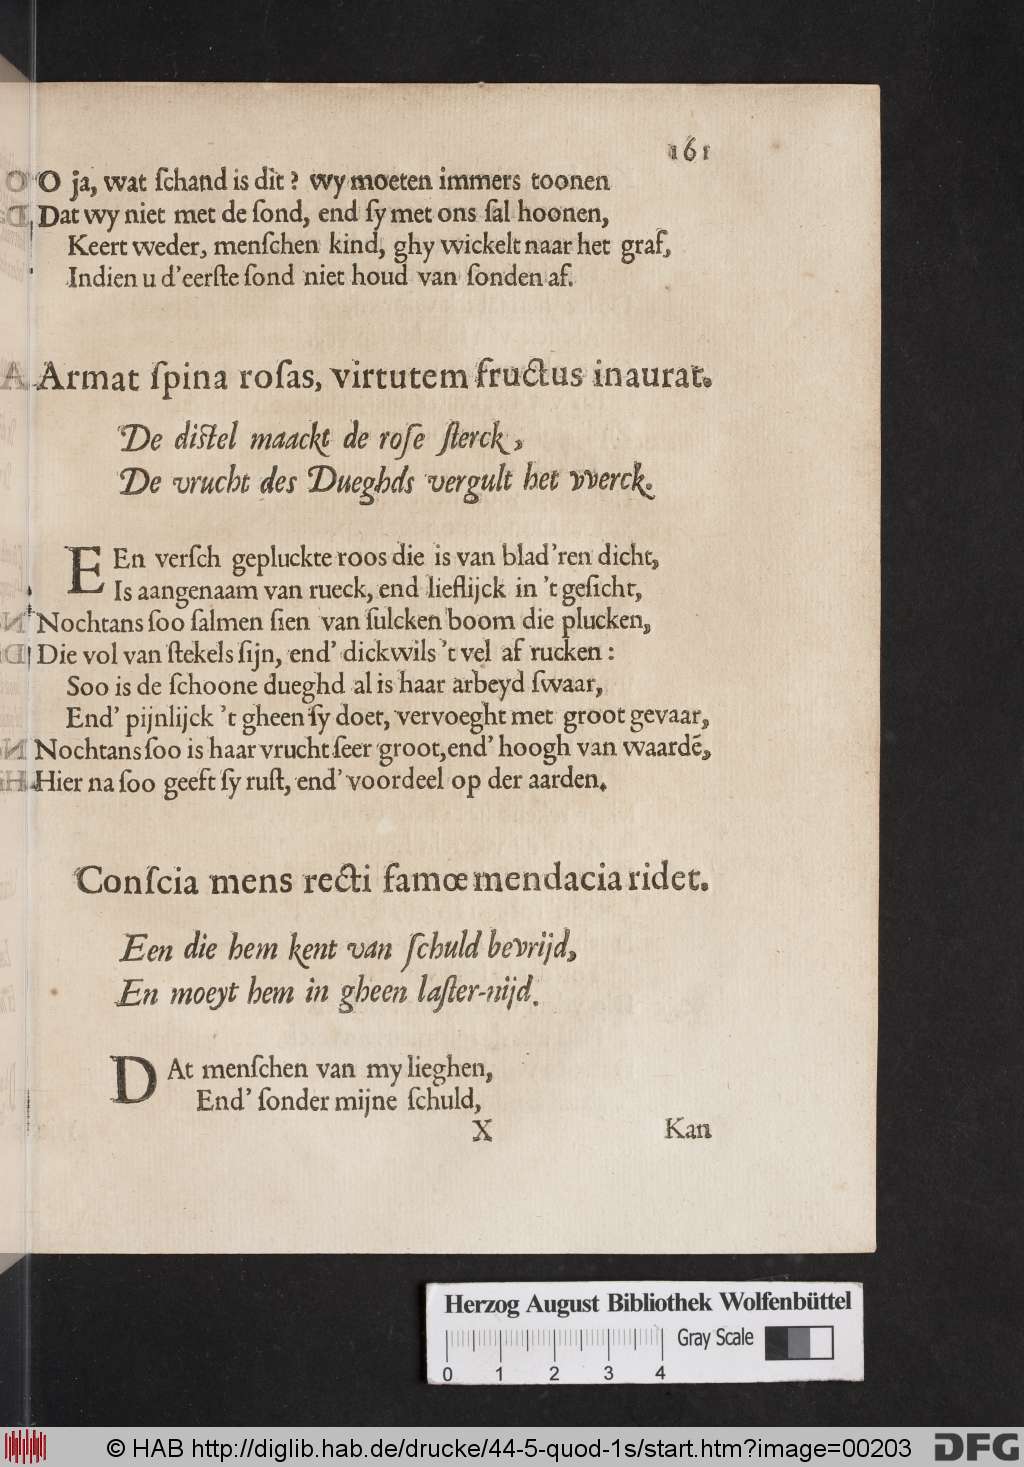 161
O ja, wat ſchand is dit? wy moeten immers toonen
Dat wy niet met de ſond, end ſy met ons ſal hoonen,
Keert weder, menſchen kind, ghy wickelt naar het graf,
Indien u d'eerſte ſond niet houd van ſonden af.
Armat ſpina roſas, virtutem fructus inaurat.
De diſtel maackt de roſe ſterck,
De vrucht des Dueghds vergult het vverck.
EEn verſch gepluckte roos die is van blad'ren dicht,
Is aangenaam van rueck, end lieflijck in 't geſicht,
Nochtans ſoo ſalmen ſien van ſulcken boom die plucken,
Die vol van ſtekels ſijn, end' dickwils 't vel af rucken:
Soo is de ſchoone dueghd al is haar arbeyd ſwaar,
End' pijnlijck 't gheen ſy doet, vervoeght met groot gevaar,
Nochtans ſoo is haar vrucht ſeer groot, end' hoogh van waardē,
Hier na ſoo geeft ſy ruſt, end' voordeel op der aarden.
Conſcia mens recti famœ mendacia ridet.
Een die hem kent van ſchuld bevrijd,
En moeyt hem in gheen laſter-nijd.
DAt menſchen van my lieghen,
End' ſonder mijne ſchuld,
X Kan
Herzog August Bibliothek Wolfenbüttel
Gray Scale
0 1 2 3 4
© HAB http://diglib.hab.de/drucke/44-5-quod-1s/start.htm?image=00203 DFG